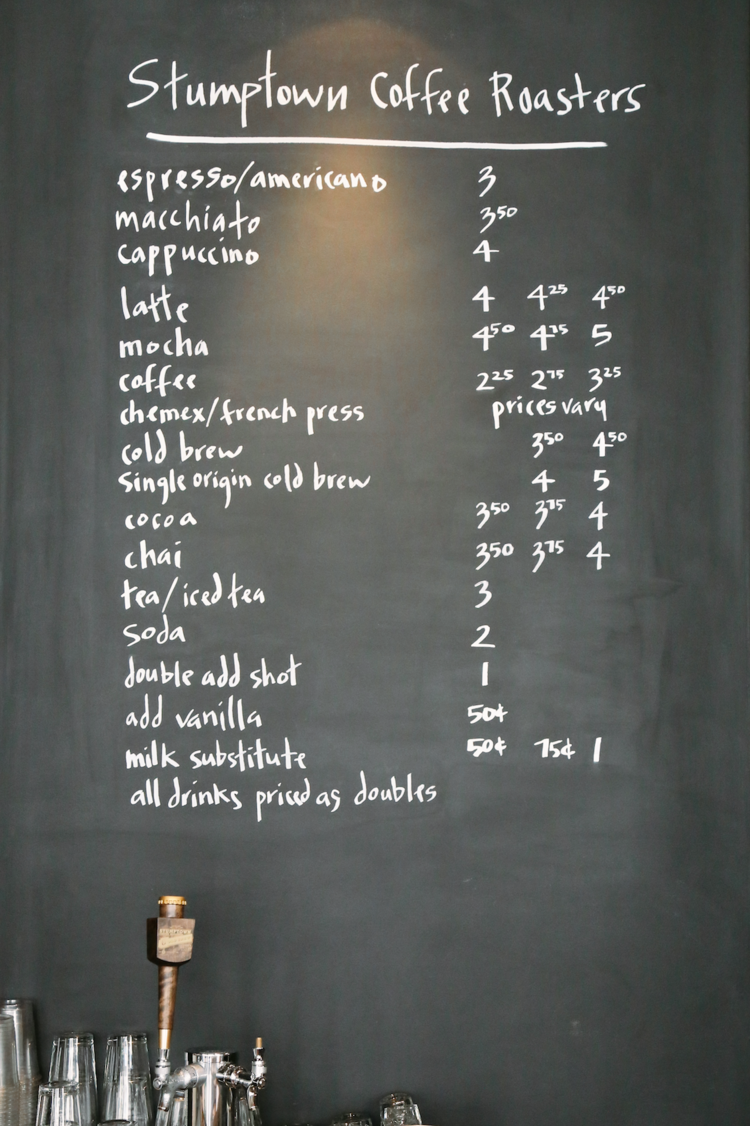 Stumptown Coffee Roasters
espresso/americano 3
macchiato 3⁵⁰
cappuccino 4
latte 4 4²⁵ 4⁵⁰
mocha 4⁵⁰ 4⁷⁵ 5
coffee 2²⁵ 2⁷⁵ 3²⁵
chemex/french press prices vary
cold brew 3⁵⁰ 4⁵⁰
single origin cold brew 4 5
cocoa 3⁵⁰ 3⁷⁵ 4
chai 3⁵⁰ 3⁷⁵ 4
tea/iced tea 3
soda 2
double add shot 1
add vanilla 50¢
milk substitute 50¢ 75¢ 1
all drinks priced as doubles